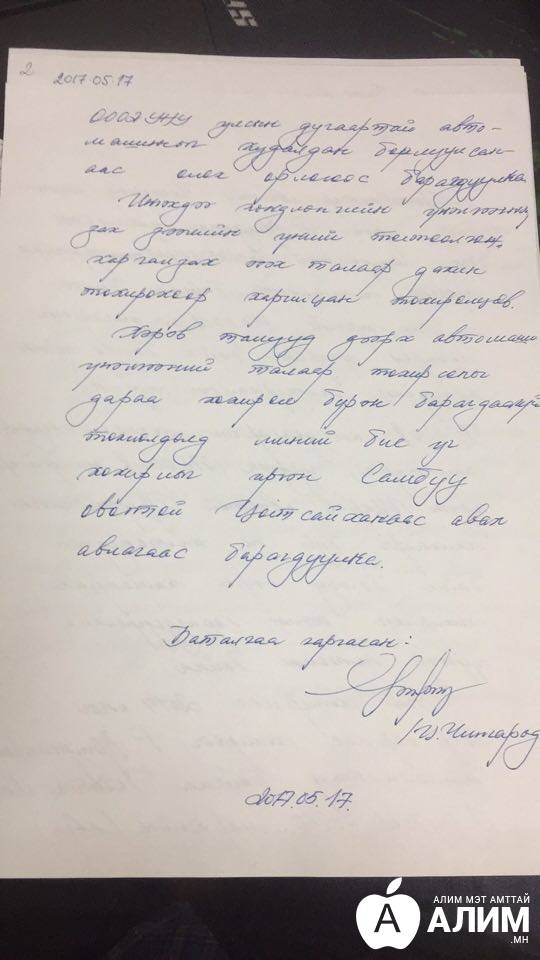 2
2017.05.17
улсын дугаартай авто-
машиныг худалдан борлуулсан-
аас олох орлогоос барагдуулна.
Үл хөдлөх хөрөнгийн үнэлгээ
зах зээлийн үнийн
харгалзах эсэх талаар дахин
тохирохоор харилцан тохиролцов.
Хэрэв талууд дээрх автомаши
үнэлгээний талаар тохирсоны
дараа хохирол бүрэн барагдаагүй
тохиолдолд миний бие уг
хохирлыг иргэн Самбуу
овогтой Цогтсайханаас авах
авлагаас барагдуулна.
Баталгаа гаргасан:
2017.05.17.
АЛИМ МЭТ АМТТАЙ
АЛИМ
.МН